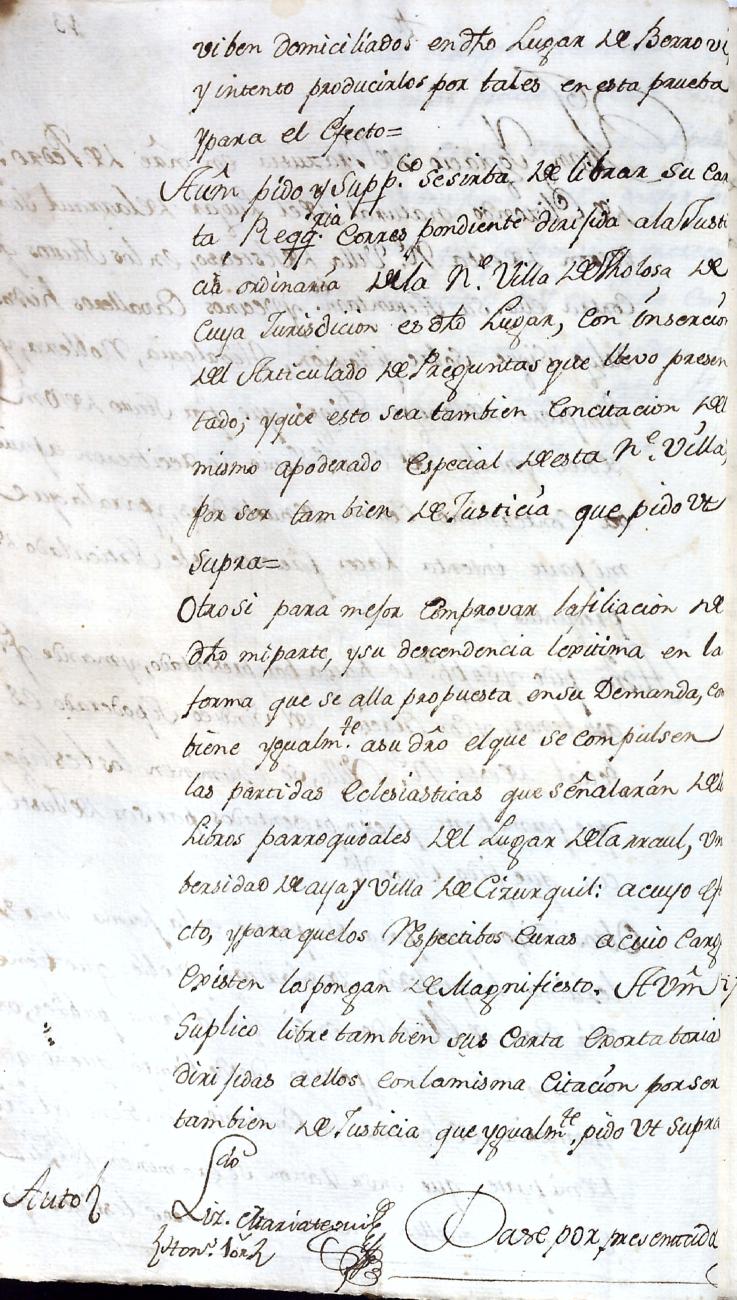 viben domiciliados en dho Lugar de Berrovi,
y intento producirlos por tales en esta prueba
y para el efecto=
AVm̃ pido y Supp.co se sirba de librar su Car
ta Reqq.ria Correspondiente dirijida a la Justi
cia ordinaria de la N.e Villa de Tholosa de
Cuya Jurisdicion es dho Lugar, con inserción
del Articulado de Preguntas que llevo presen
tado; y que esto sea tambien Con citacion del
mismo apoderado especial de esta N.e Villa,
Por ser tambien de Justicia que pido Vt
Supra=
Otro si para mejor Comprovar la filiacion de
dho mi parte, y su descendencia lexitima en la
forma que se alla propuesta en su Demanda, co
biene ygualm.te a su dr̃o el que se compulsen
las partidas eclesiasticas que señalarán de los
Libros parroquiales del Lugar de Larraul, Vni
bersidad de aya y Villa de Cizurquil: a cuyo efe
cto, y para que los Respectibos Curas a cuio Cargo
existen los pongan de Magnifiesto. AVm̃
Suplico libre tambien sus Carta exortatoria
dirijidas a ellos con la misma Citacion por ser
tambien de Justicia que ygualm.te pido Vt Supra
Auto
Dase por presentada